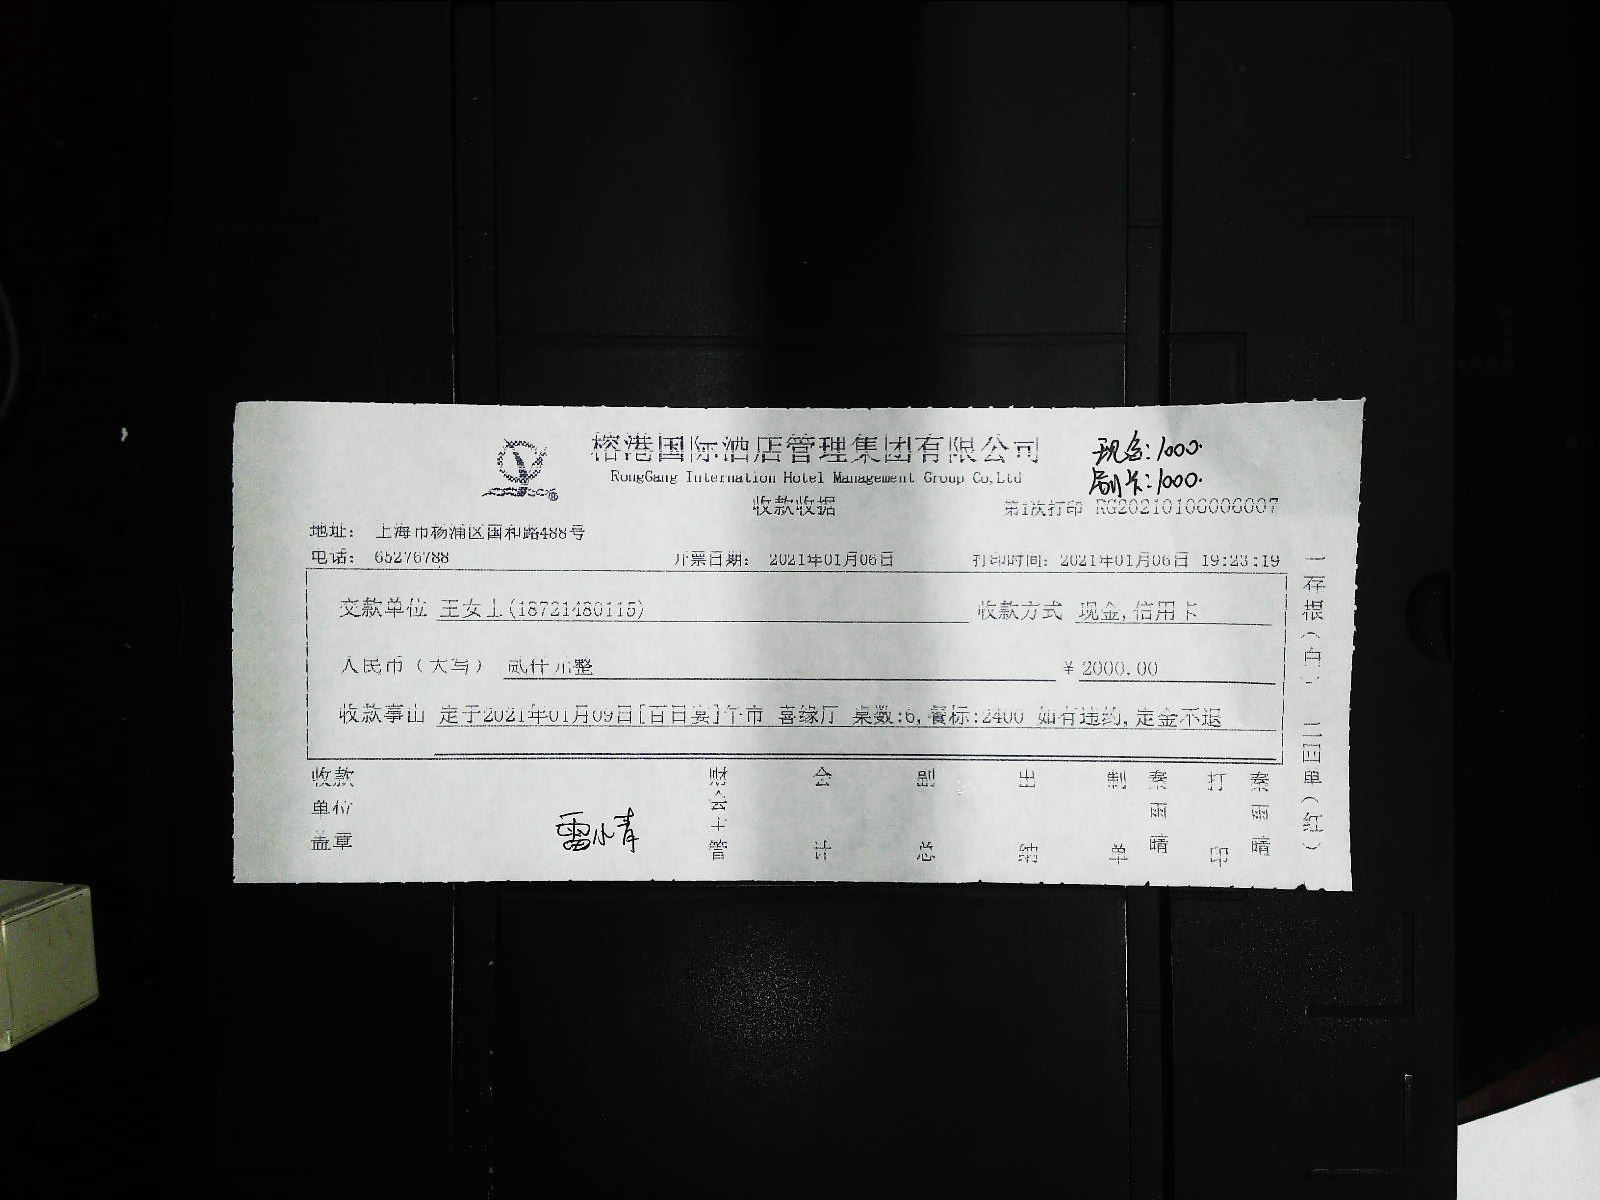 榕港国际酒店管理集团有限公司
RongGang Internation Hotel Management Group Co,Ltd
收款收据
现金:1000.
刷卡:1000.
第1次打印 RG20210106006007
地址: 上海市杨浦区国和路488号
电话: 65276788 开票日期: 2021年01月06日 打印时间: 2021年01月06日 19:23:19
交款单位 王女士(18721480115) 收款方式 现金,信用卡
人民币(大写) 贰仟元整 ¥2000.00
收款事由 定于2021年01月09日[百日宴]午市 喜缘厅 桌数:6,餐标:2400 如有违约,定金不退
收款单位盖章
雷小青
财会主管 会计 副总 出纳 制单 秦雨晴 打印 秦雨晴
一存根(白) 二回单(红)